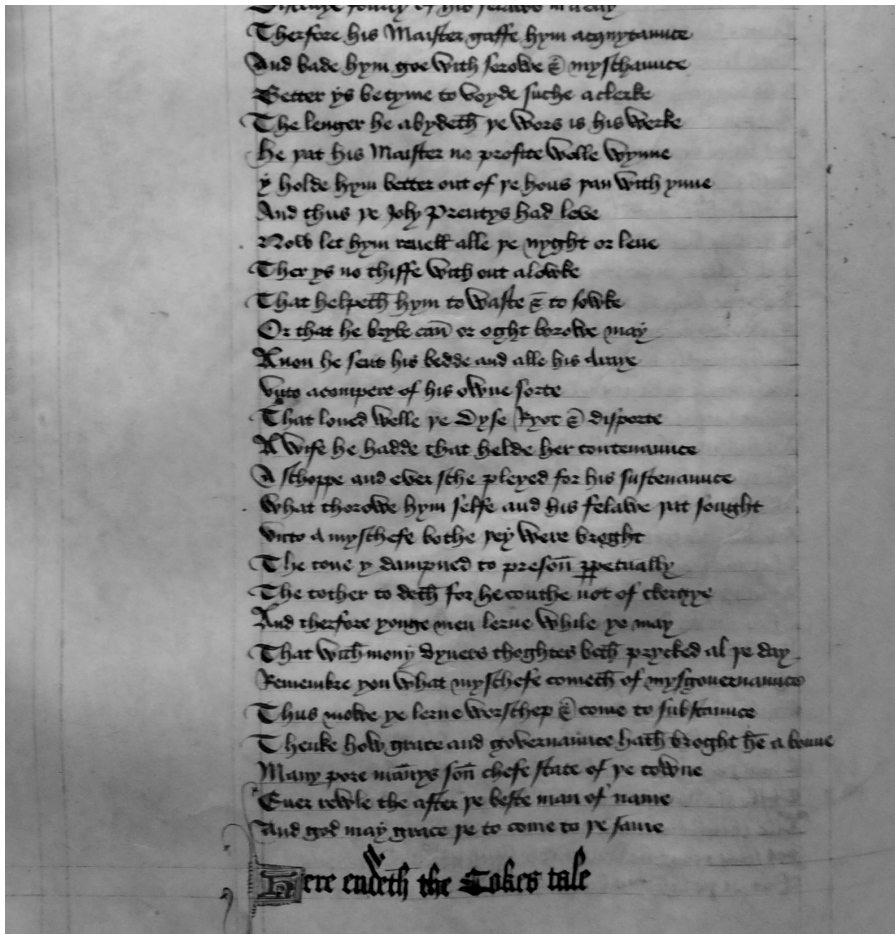 Therfore his Maister gaffe hym acquytaunce
And bade hym goe with sorowe & myschaunce
Better ys be tyme to voyde suche a clerke
The lenger he abydeth þe wors is his werke
He þat his Maister no profite wolle wynne
y holde hym better out of þe hous þan with ynne
And thus þe Joly Prentys had leve
Now let hym revell alle þe nyght or leue
Ther ys no thiffe with out a lowke
That helpeth hym to waste & to sowke
Or that he brybe can or oght borowe may
Anon he sent his bedde and alle his Araye
vnto a compere of his owne sorte
That loued welle þe Dyse Ryot & disporte
A wife he hadde that helde her contenaunce
A schoppe and ever sche pleyed for his sustenaunce
What thorowe hym selfe and his felawe þat sought
vnto a myschefe bothe þey were broght
The tone y dampned to preson perpetually
The tother to deth for he couthe not of clergye
And therfore yonge men lerne while ye may
That with mony dyuers thoghtes beth prycked al þe day
Remembre you what myschefe cometh of mysgovernaunce
Thus mowe ye lerne worschep & come to substaunce
Thenke how grace and governaunce hath broght hem a boune
Many pore mannys son chefe state of þe towne
Euer rewle the after þe beste man of name
And god may grace þe to come to þe same
Here endeth the Cokes tale